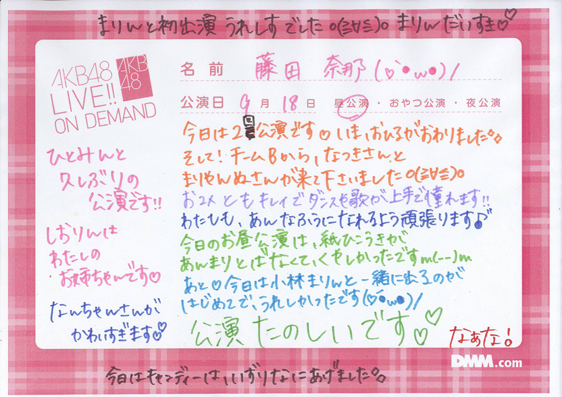 まりんと初出演うれしすでした o(≧∀≦)o まりんだいすき♡
AKB48
LIVE!!
ON DEMAND
AKB
48
名前 藤田 奈那(○´●ω●)/
公演日 9月18日 昼公演・おやつ公演・夜公演
今日は2回公演です♡いま、おひるがおわりました。
そして!チームBから、なつきさんと
まりやんぬさんが来て下さいました o(≧∀≦)o
お2人ともキレイでダンスや歌が上手で憧れます!!
わたしも、あんなふうになれるよう頑張ります♪
今日のお昼公演は、紙ひこうきが
あんまりとばなくてくやしかったですm(--)m
あと♡今日は小林まりんと一緒に出るのが
はじめてで、うれしかったです(○´●ω●)/
公演たのしいです♡♡
ひとみんと
久しぶりの
公演です!!
しおりんは
わたしの
お姉ちゃんです♡
なんちゃんさんが
かわいすぎます♡
なぁな!
DMM.com
今日はキャンディーは、いずりなにあげました。